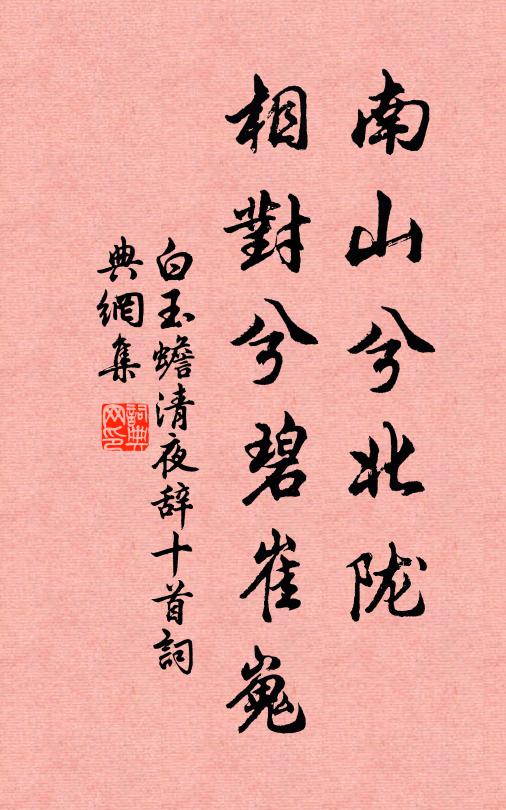 南山兮北陇
相對兮碧崔嵬
白玉蟾清夜辞十首詞
典網集
詞典网印